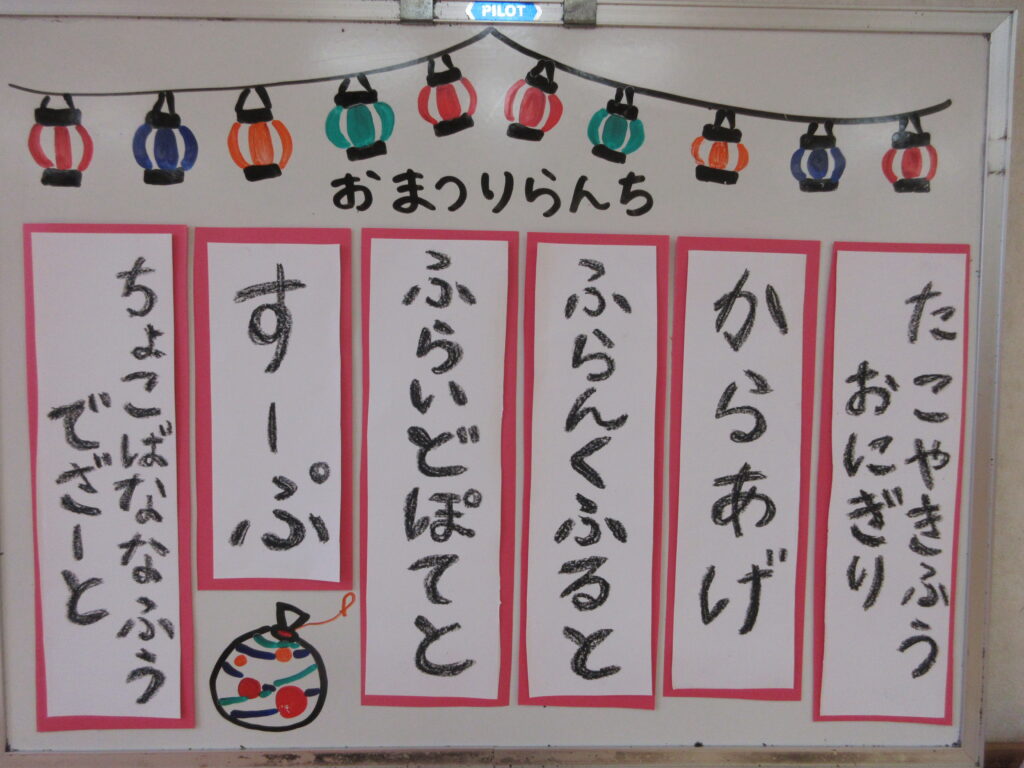 PILOT
おまつりらんち
たこやきふう
おにぎり
からあげ
ふらんくふると
ふらいどぽてと
すーぷ
ちょこばななふう
でざーと